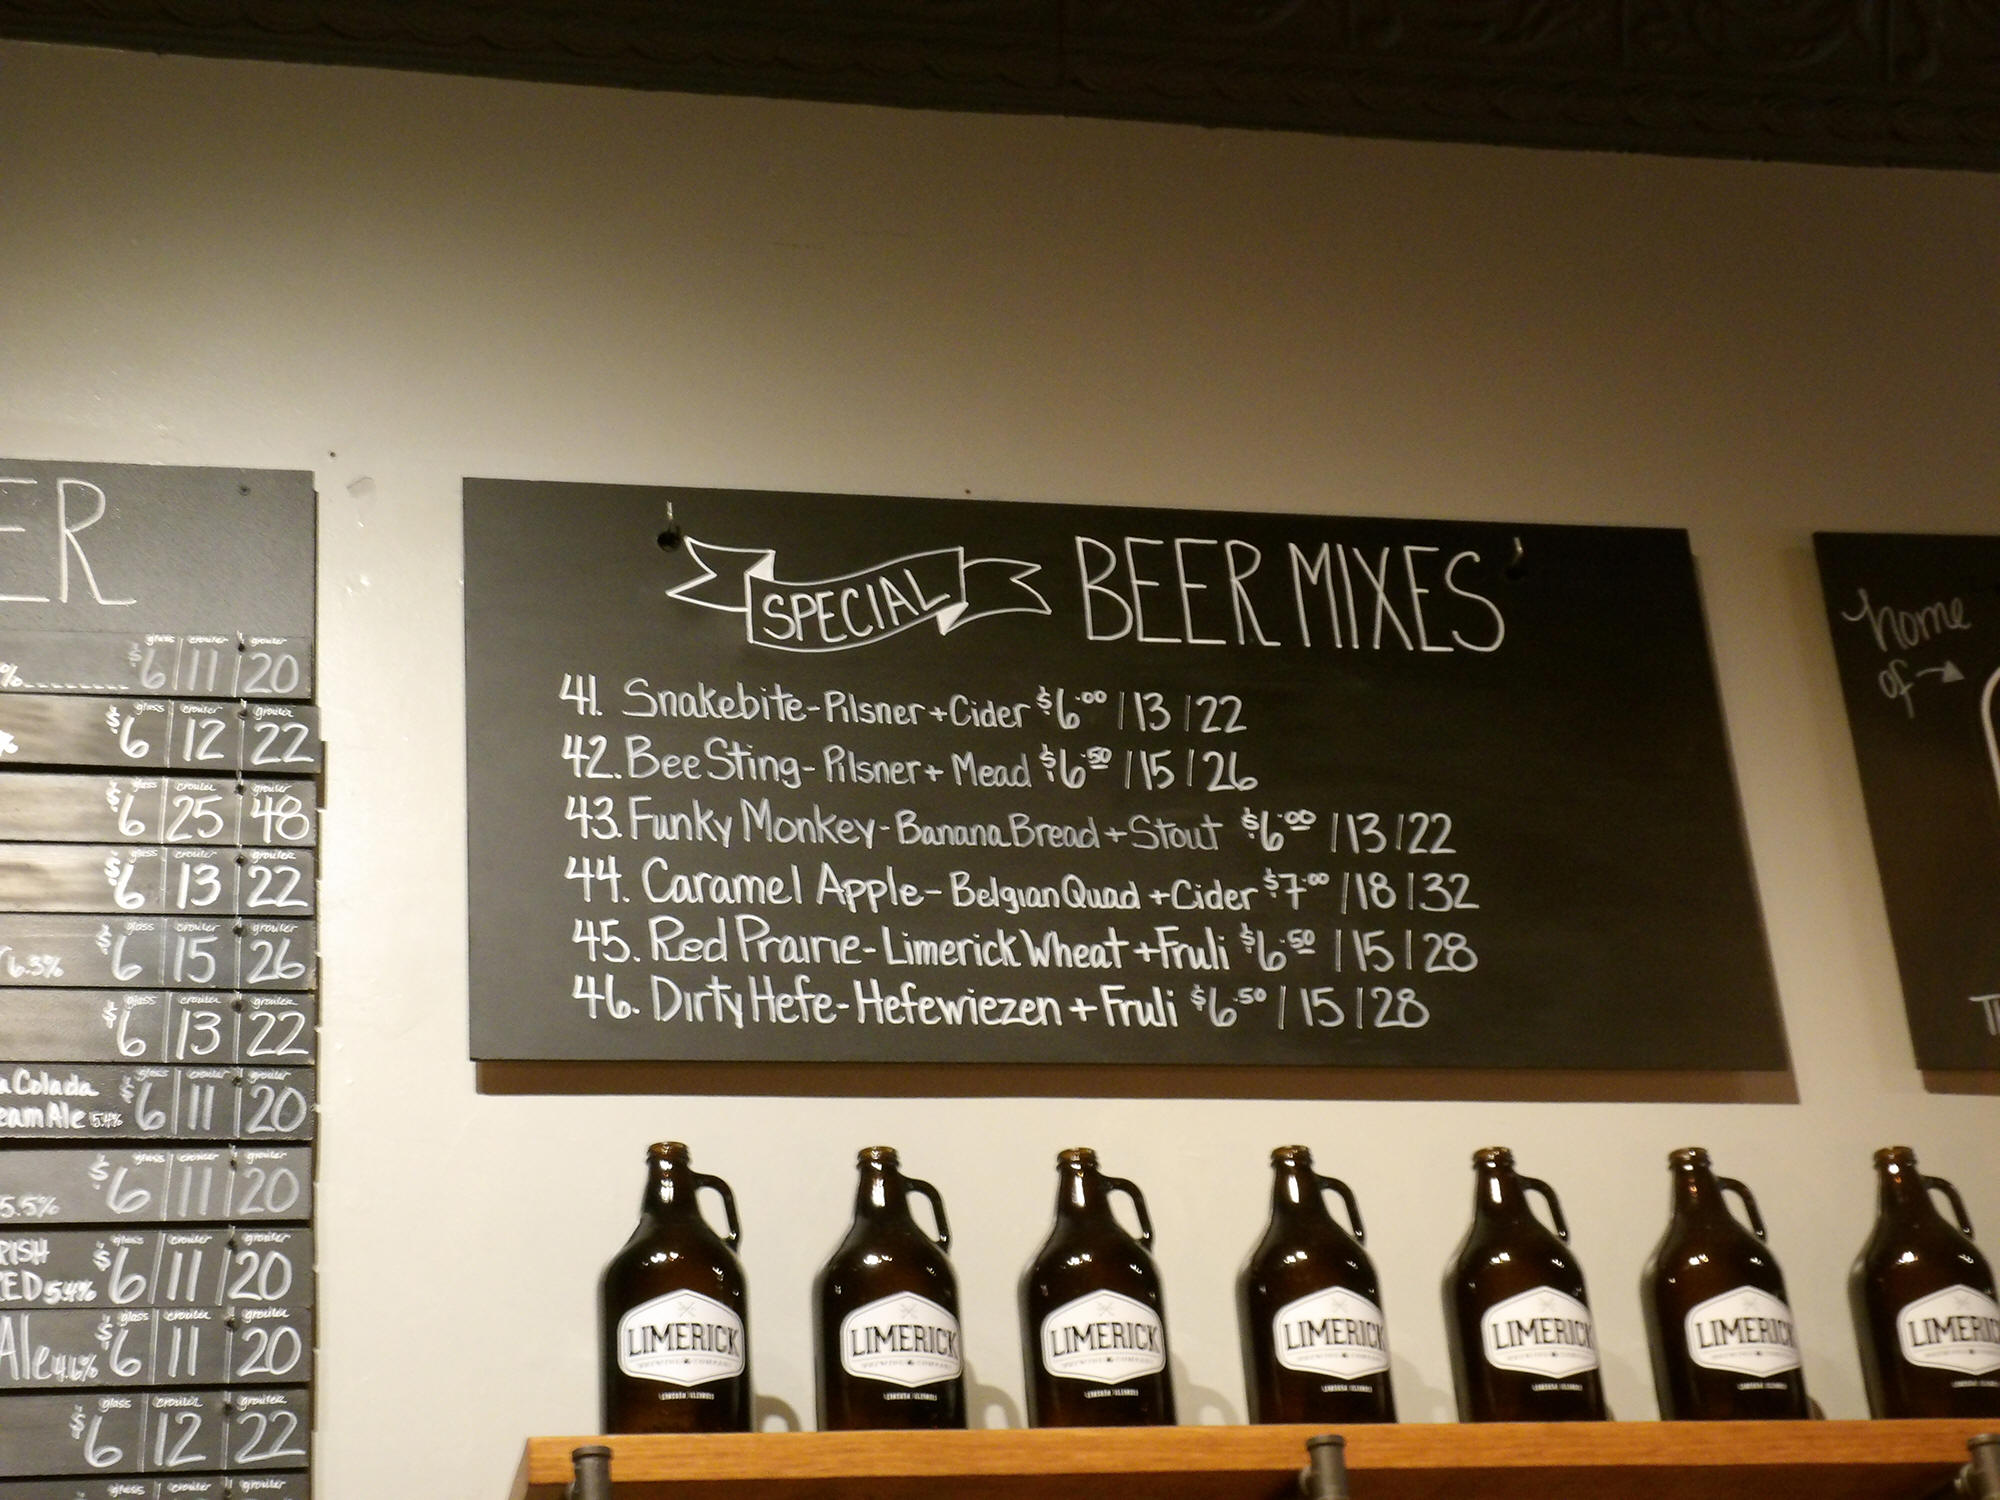 ER
glass crowler growler
%
$6 11 20
glass crowler growler
%
$6 12 22
glass crowler growler
$6 25 48
glass crowler growler
$6 13 22
glass crowler growler
6.3% $6 15 26
glass crowler growler
$6 13 22
glass crowler growler
a Colada
eam Ale 5.4% $6 11 20
glass crowler growler
5.5% $6 11 20
glass crowler growler
RISH
ED 5.4% $6 11 20
glass crowler growler
Ale 4.6% $6 11 20
glass crowler growler
$6 12 22
glass crowler growler
SPECIAL BEER MIXES
41. Snakebite-Pilsner+Cider $6.00 | 13 | 22
42. Bee Sting-Pilsner+ Mead $6.50 | 15 | 26
43. Funky Monkey-Banana Bread+Stout $6.00 | 13 | 22
44. Caramel Apple-Belgian Quad +Cider $7.00 | 18 | 32
45. Red Prairie-Limerick Wheat +Fruli $6.50 | 15 | 28
46. Dirty Hefe-Hefewiezen + Fruli $6.50 | 15 | 28
home
of →
LIMERICK
BREWING COMPANY
LIMERICK
BREWING COMPANY
LIMERICK
BREWING COMPANY
LIMERICK
LIMERICK
LIMERICK
LIMERICK